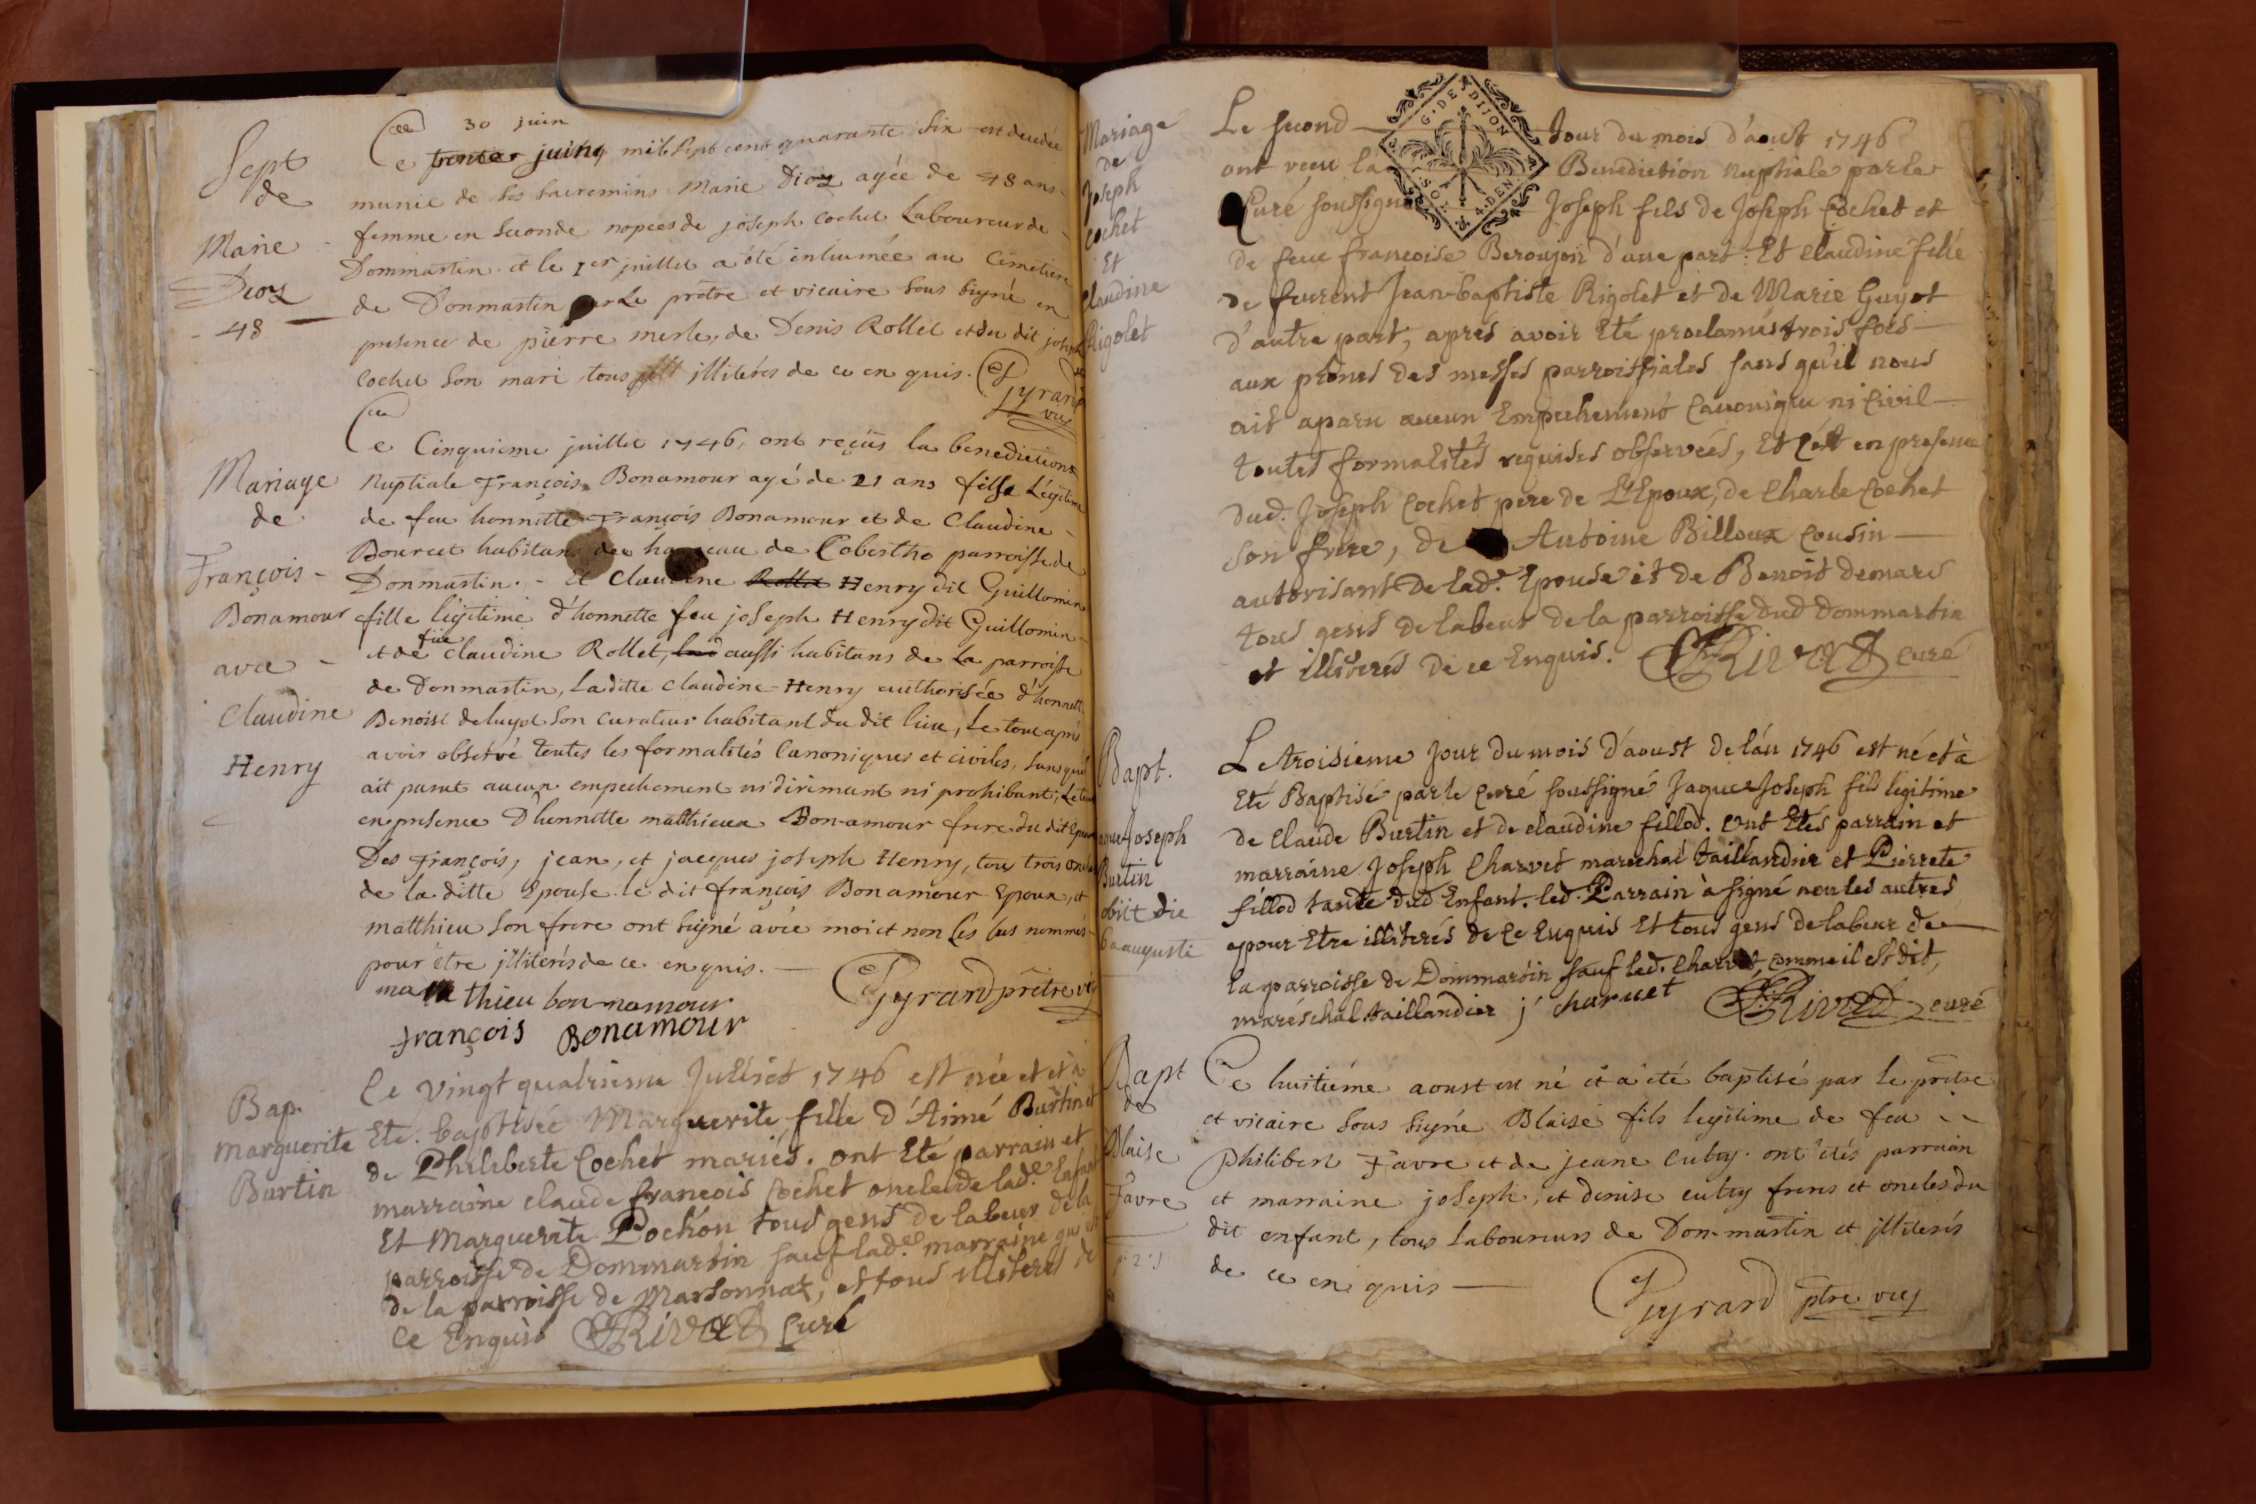 Sept
de
Marie
Dioz
48
30 juin
Ce trente juing mil sept cent quarante six est decedée
munie de ses sacremins Marie Dioz agée de 48 ans
femme en seconde nopces de joseph Cochet Laboureur de
Dommartin et le 1er juillet a été inhumée au Cimetiere
de Donmartin par le prêtre et vicaire sous signé en
presence de pierre merle, de Denis Rollet et du dit joseph
Cochet son mari tous illiterés de ce en quis. Gyrard
vic
Mariage
de
François
Bonamour
avec
Claudine
Henry
Ce Cinquieme juillet 1746, ont reçûs la benediction
Nuptiale François Bonamour agé de 21 ans fils Légitime
de feu honnette François Bonamour et de Claudine
Bourcet habitans de hameau de Cobertho parroisse de
Donmartin. Et Claudine Rollet Henry dit Guillomin
fille légitime d'honnette feu joseph Henry dit Guillomin
et de feue Claudine Rollet, aussi habitans de la parroisse
de Donmartin, Laditte Claudine Henry authorisée d'honnette
Benoist deluyd son curateur habitant du dit lieu, Le tout après
avoir observé toutes les formalités Canoniques et civiles, sans qu'il
ait parut aucun empechement ni dirimant ni prohibant; Le tout
en presence d'honnette matthieu Bon-amour frere du dit Epoux
Des François, jean, et jacques joseph Henry, tous trois oncles
de la ditte Epouse le dit François Bonamour Epoux, et
matthieu son frere ont signé avec moi et non les sus nommés
pour être illiterés de ce en quis. Gyrard prêtre vic
mathieu bonnamour
françois Bonamour
Bap.
Marguerite
Burtin
Le vingt quatrieme Juillet 1746 est née et et à
Eté baptisée Marguerite fille d'Aimé Burtin et
de Philiberte Cochet mariés. ont Eté parrain et
marraine Claude françois Cochet oncle de lad.e Enfant
Et Marguerite Pochon tous gens de labeur de la
parroisse de Dommartin sauf lad.e marraine qui est
de la parroisse de Marsonnax, et tous illiterés de
ce Enquis Rivet Curé
Mariage
de
Joseph
Cochet
Et
Claudine
Rigolet
Le second jour du mois d'aoust 1746
ont reçu la Benediction Nuptiale par le
Curé soussigné Joseph fils de Joseph Cochet et
de feue françoise Beroujon d'une part. Et Claudine fille
de feurent Jean-baptiste Rigolet et de Marie Guyot
d'autre part, apres avoir Eté proclamés trois fois
aux prônes des messes parroissiales sans qu'il nous
ait aparu aucun Empechement Canonique ni Civil
toutes formalités requises observées, Et c'est en presence
dud. Joseph Cochet pere de L'Epoux, de Charle Cochet
son frere, de Antoine Billoux Cousin
autorisant de lad.e Epouse et de Benoit demars
tous gens de labeur de la parroisse dud Dommartin
et illiterés de ce Enquis. Rivet Curé
Bapt.
Joseph
Burtin
obiit die
6a augusti
Le troisieme jour du mois d'aoust de l'an 1746 est né et à
Eté Baptisé par le Curé soussigné Jaque Joseph fils legitime
de Claude Burtin et de claudine fillod. Ont Etés parrain et
marraine Joseph Charvet marechal taillandier et Pierrete
fillod tante dud Enfant. led. Parrain à signé non les autres
pour Etre illiterés de ce Enquis Et tous gens de labeur de
la parroisse de Dommartin sauf led. Charvet, comme il est dit,
mareschal taillandier j charvet Rivet curé
Bapt
de
Blaise
Favre
Ce huitième aoust est né et a été baptisé par le prêtre
et vicaire sous signé Blaise fils legitime de feu
Philibert Favre et de jeane cutry. ont étés parrain
et marraine joseph, et denise cutry freres et oncles du
dit enfant, tous Laboureurs de Don-martin et illiterés
de ce en quis
Gyrard ptre vic
G. DE DIJON
SOL. 4. DEN